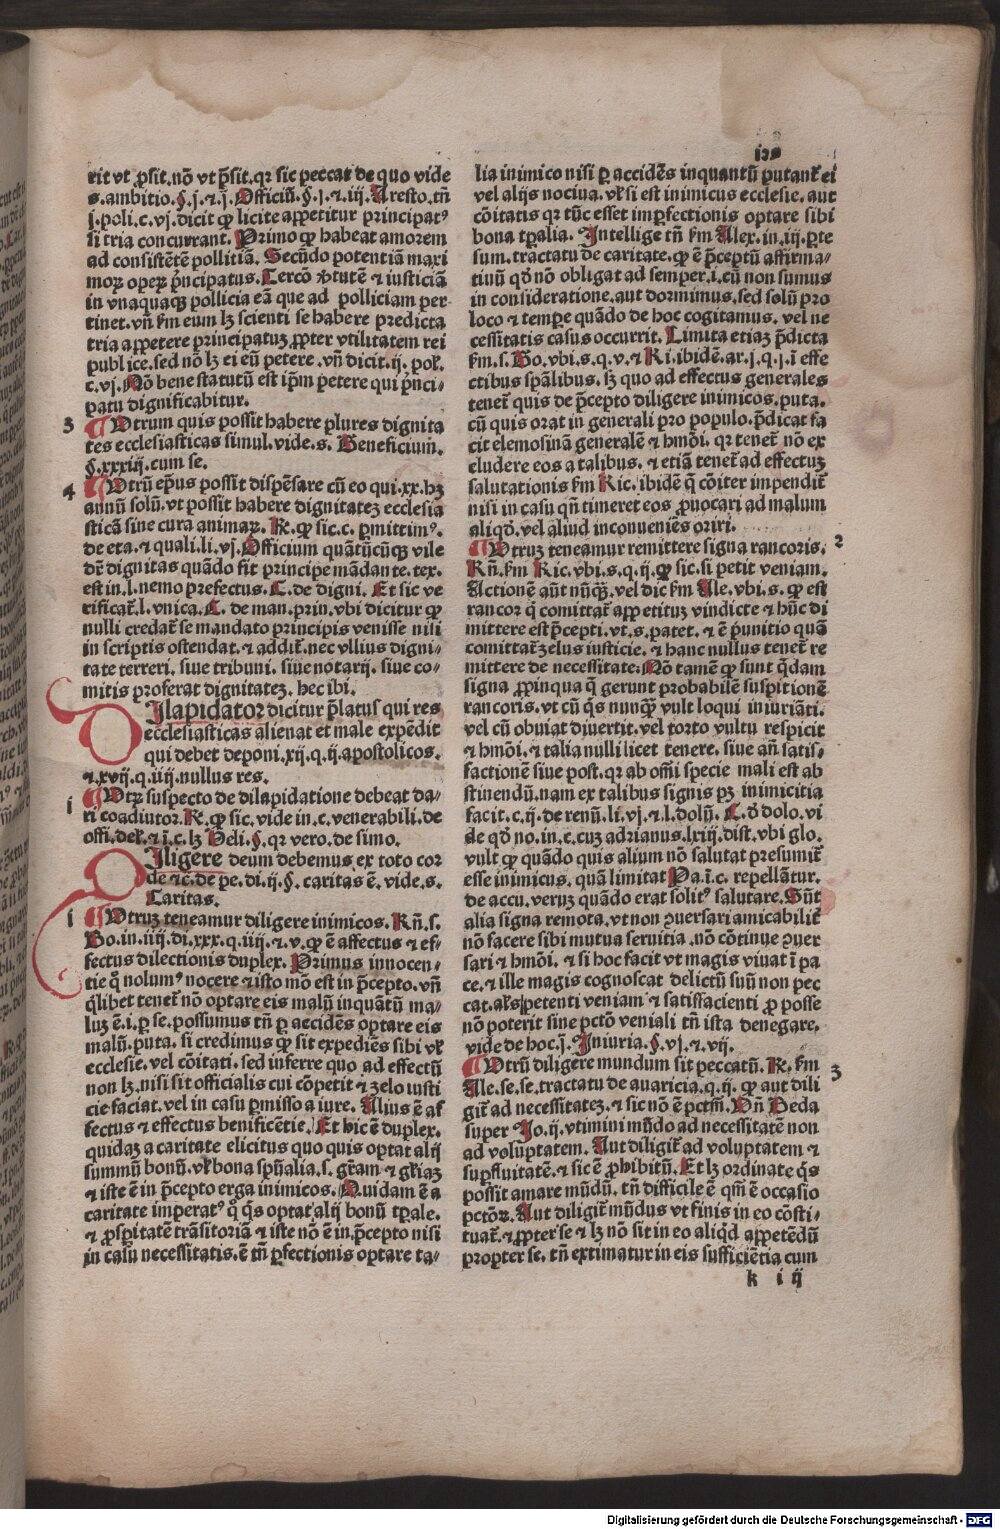 rit vt ꝓsit. nō vt p̄sit. qꝛ sic peccat de quo vide
s. ambitio. §. j. ⁊. j. Officiū. §. j. ⁊. iij. Aresto. tn̄
j. poli. c. vj. dicit ꝙ licite appetitur principatꝰ
si tria concurrant. Primo ꝙ habeat amorem
ad consistētē pollitiā. Secūdo potentiā maxi
moꝝ opeꝝ p̄ncipatus. Tercō v̓tutē ⁊ iusticiā
in vnaquaqꝫ pollicia eā que ad polliciam per
tinet. vn̄ ẜm eum lꝫ scienti se habere predicta
tria appetere principatuꝫ ꝓpter vtilitatem rei
publice. sed nō lꝫ ei eū petere. vn̄ dicit. ij. pol̓.
c. vj. Nō bene statutū est ip̄m petere qui p̄nci-
patu dignificabitur.
3 ¶ Vtrum quis possit habere plures dignita
tes ecclesiasticas simul. vide. s. Beneficium.
§. xxxiij. cum se.
4 ¶ Vtrū ep̄us possit dispēsare cū eo qui. xx. hꝫ
annū solū. vt possit habere dignitateꝫ ecclesia
sticā sine cura animaꝝ. R̄. ꝙ sic. c. ꝑmittimꝰ.
de eta. ⁊ quali. li. vj. Officium quātūcūqꝫ vile
dr̄ dignitas quādo fit principe mādante. tex.
est in. l. nemo prefectus. C. de digni. Et sic ve
rificat̄. l. vnica. C. de man. prin. vbi dicitur ꝙ
nulli credat̄ se mandato principis venisse nisi
in scriptis ostendat. ⁊ addit̄. nec vllius digni-
tate terreri. siue tribuni. siue notarij. siue co-
mitis proferat dignitateꝫ. hec ibi.
DIlapidator dicitur p̄latus qui res
ecclesiasticas alienat et male expēdit
qui debet deponi. xij. q. ij. apostolicos.
⁊. xvij. q. iiij. nullus res.
i ¶ Vtꝝ suspecto de dilapidatione debeat da-
ri coadiutor. R̄. ꝙ sic. vide in. c. venerabili. de
offi. del̓. ⁊ ī. c. lꝫ Heli. §. qꝛ vero. de simo.
DIligere deum debemus ex toto cor
de ⁊c̄. de pe. di. ij. §. caritas ē. vide. s.
Caritas.
i ¶ Vtruꝫ teneamur diligere inimicos. Rn̄. s.
Bo. in. iiij. di. xxx. q. iiij. ⁊. v. ꝙ ē affectus ⁊ ef-
fectus dilectionis duplex. Primus innocen-
tie q̄ nolumꝰ nocere ⁊ isto mō est in p̄cepto. vn̄
q̄libet tenet̄ nō optare eis malū inquātū ma-
luꝫ ē. i. ꝑ se. possumus tn̄ ꝑ accidēs optare eis
malū. puta. si credimus ꝙ sit expediēs sibi vl̓
ecclesie. vel cōitati. sed inferre quo ad effectū
non lꝫ. nisi sit officialis cui cōpetit ⁊ zelo iusti
cie faciat. vel in casu ꝑmisso a iure. Alius ē af
fectus ⁊ effectus beneficētie. Et hic ē duplex.
quidaꝫ a caritate elicitus quo quis optat alij
summū bonū. vl̓ bona spūalia. s. gr̄am ⁊ gl̓iaꝫ
⁊ iste ē in p̄cepto erga inimicos. Quidam ē a
caritate imperatꝰ q̊ q̄s optat alij bonū tꝑale.
⁊ ꝓsꝑitatē trāsitoriā ⁊ iste nō ē in p̄cepto nisi
in casu necessitatis. ē tn̄ ꝑfectionis optare ta-
lia inimico nisi ꝑ accidēs inquantū putant̄ ei
vel alijs nociua. vl̓ si est inimicus ecclesie. aut
cōitatis qꝛ tūc esset imperfectionis optare sibi
bona tꝑalia. Intellige tn̄ ẜm Alex. in. iij. parte
sum. tractatu de caritate. ꝙ ē p̄ceptū affirma-
tiuū qd̓ nō obligat ad semper. i. cū non sumus
in consideratione. aut dormimus. sed solū pro
loco ⁊ tempe quādo de hoc cogitamus. vel ne
cessitatis casus occurrit. Limita etiaꝫ p̄dicta
ẜm. s. Bo. vbi. s. q. v. ⁊ Ri. ibidē. ar. j. q. j. ī effe
ctibus sp̄alibus. lꝫ quo ad effectus generales
tenet̄ quis de p̄cepto diligere inimicos. puta.
cū quis orat in generali pro populo. p̄dicat fa
cit elemosinā generalē ⁊ hmōi. qꝛ tenet̄ nō ex
cludere eos a talibus. ⁊ etiā tenet̄ ad effectuꝫ
salutationis ẜm Ric. ibidē q̄ cōiter impendit̄
nisi in casu qn̄ timeret eos ꝓuocari ad malum
aliqd̓. vel aliud inconueniēs oriri.
¶ Vtruꝫ teneamur remittere signa rancoris. 2
Rn̄. ẜm Ric. vbi. s. q. ij. ꝙ sic. si petit veniam.
Actionē aūt nūqꝫ. vel dic ẜm Ale. vbi. s. ꝙ est
rancor q̄ comittat̄ appetituꝫ vindicte ⁊ hūc di
mittere est p̄cepti. vt. s. patet. ⁊ ē p̄unitio quā
comittat̄ zelus iusticie. ⁊ hanc nullus tenet̄ re
mittere de necessitate. Nō tamē ꝙ sunt q̄dam
signa ꝓpinqua q̄ gerunt probabilē suspitionē
rancoris. vt cū q̄s nunqꝫ vult loqui iniuriāti.
vel cū obuiat diuertit. vel torto vultu respicit
⁊ hmōi. ⁊ talia nulli licet tenere. siue an̄ satis-
factionē siue post. qꝛ ab om̄i specie mali est ab
stinendū. nam ex talibus signis pꝫ inimicitia
facit. c. ij. de renū. li. vj. ⁊ l. dolū. C. d̓ dolo. vi
de qd̓ no. in. c. cuꝫ adrianus. lxiij. dist. vbi glo.
vult ꝙ quādo quis alium nō salutat presumit̄
esse inimicus. quā limitat Pa. ī. c. repellātur.
de accu. veruꝫ quādo erat solitꝰ salutare. Sūt
alia signa remota. vt non ꝯuersari amicabilit̄
nō facere sibi mutua seruitia. nō cōtinue ꝯuer
sari ⁊ hmōi. ⁊ si hoc facit vt magis viuat ī pa
ce. ⁊ ille magis cognoscat delictū suū non pec
cat. al̓s petenti veniam ⁊ satisfacienti ꝓ posse
nō poterit sine pctō veniali tn̄ ista denegare.
vide de hoc. j. Iniuria. §. vj. ⁊ vij.
¶ Vtrū diligere mundum sit peccatū. R̄. ẜm 3
Ale. se. se. tractatu de auaricia. q. ij. ꝙ aut dili
git̄ ad necessitateꝫ. ⁊ sic nō ē pctm̄. Vn̄ Beda
super Jo. ij. vtimini mūdo ad necessitatē non
ad voluptatem. Aut diligit̄ ad voluptatem ⁊
suꝑfluitatē. ⁊ sic ē ꝓhibitū. Et lꝫ ordinate q̄s
possit amare mūdū. tn̄ difficile ē qm̄ ē occasio
pctōꝝ. Aut diligit̄ mūdus vt finis in eo cōsti-
tuat̄. ⁊ ꝓpter se ⁊ lꝫ nō sit in eo aliqd̓ appetēdū
propter se. tn̄ extimatur in eis sufficiētia cum
k iij
Digitalisierung gefördert durch die Deutsche Forschungsgemeinschaft - DFG